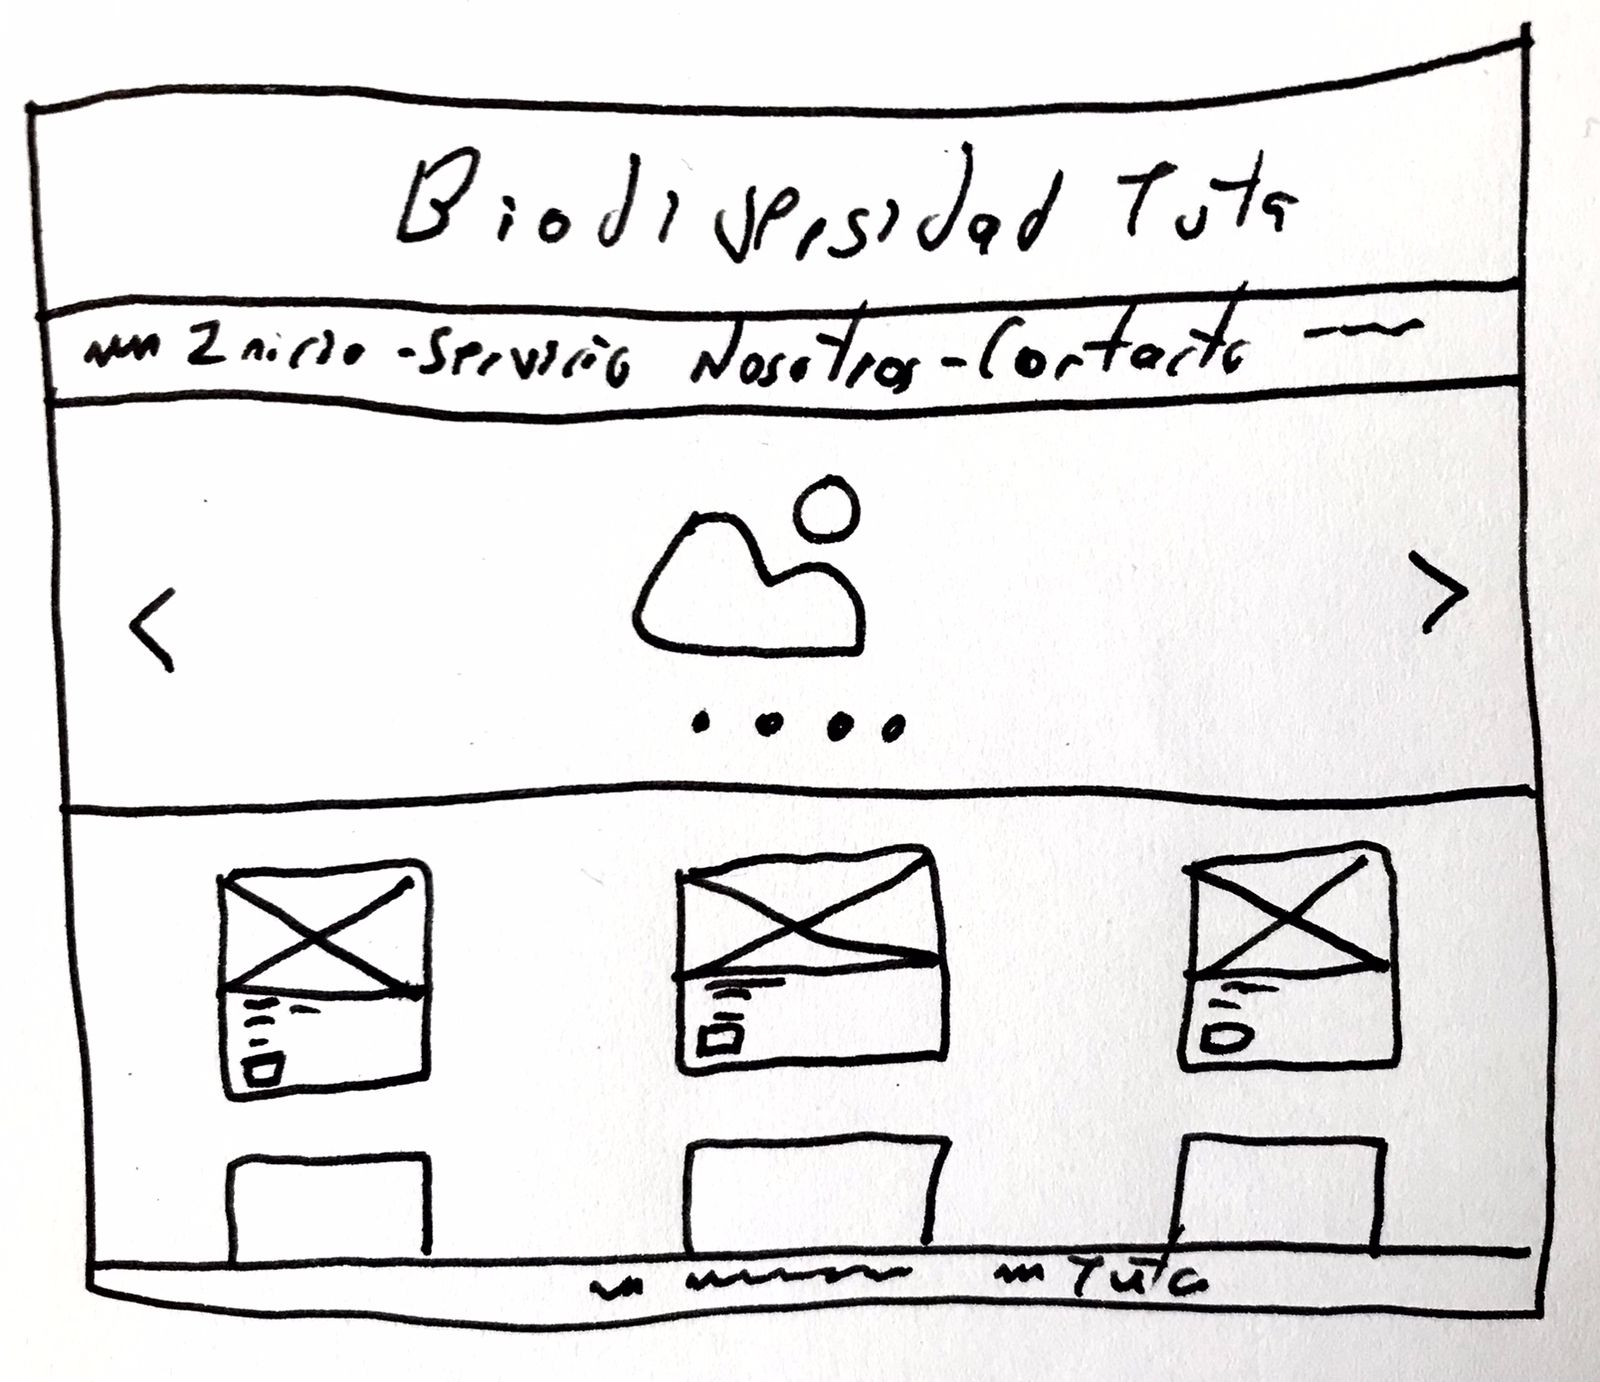 Biodiversidad Tuta
Inicio - Servicio Nosotros - Contacto
Tuta